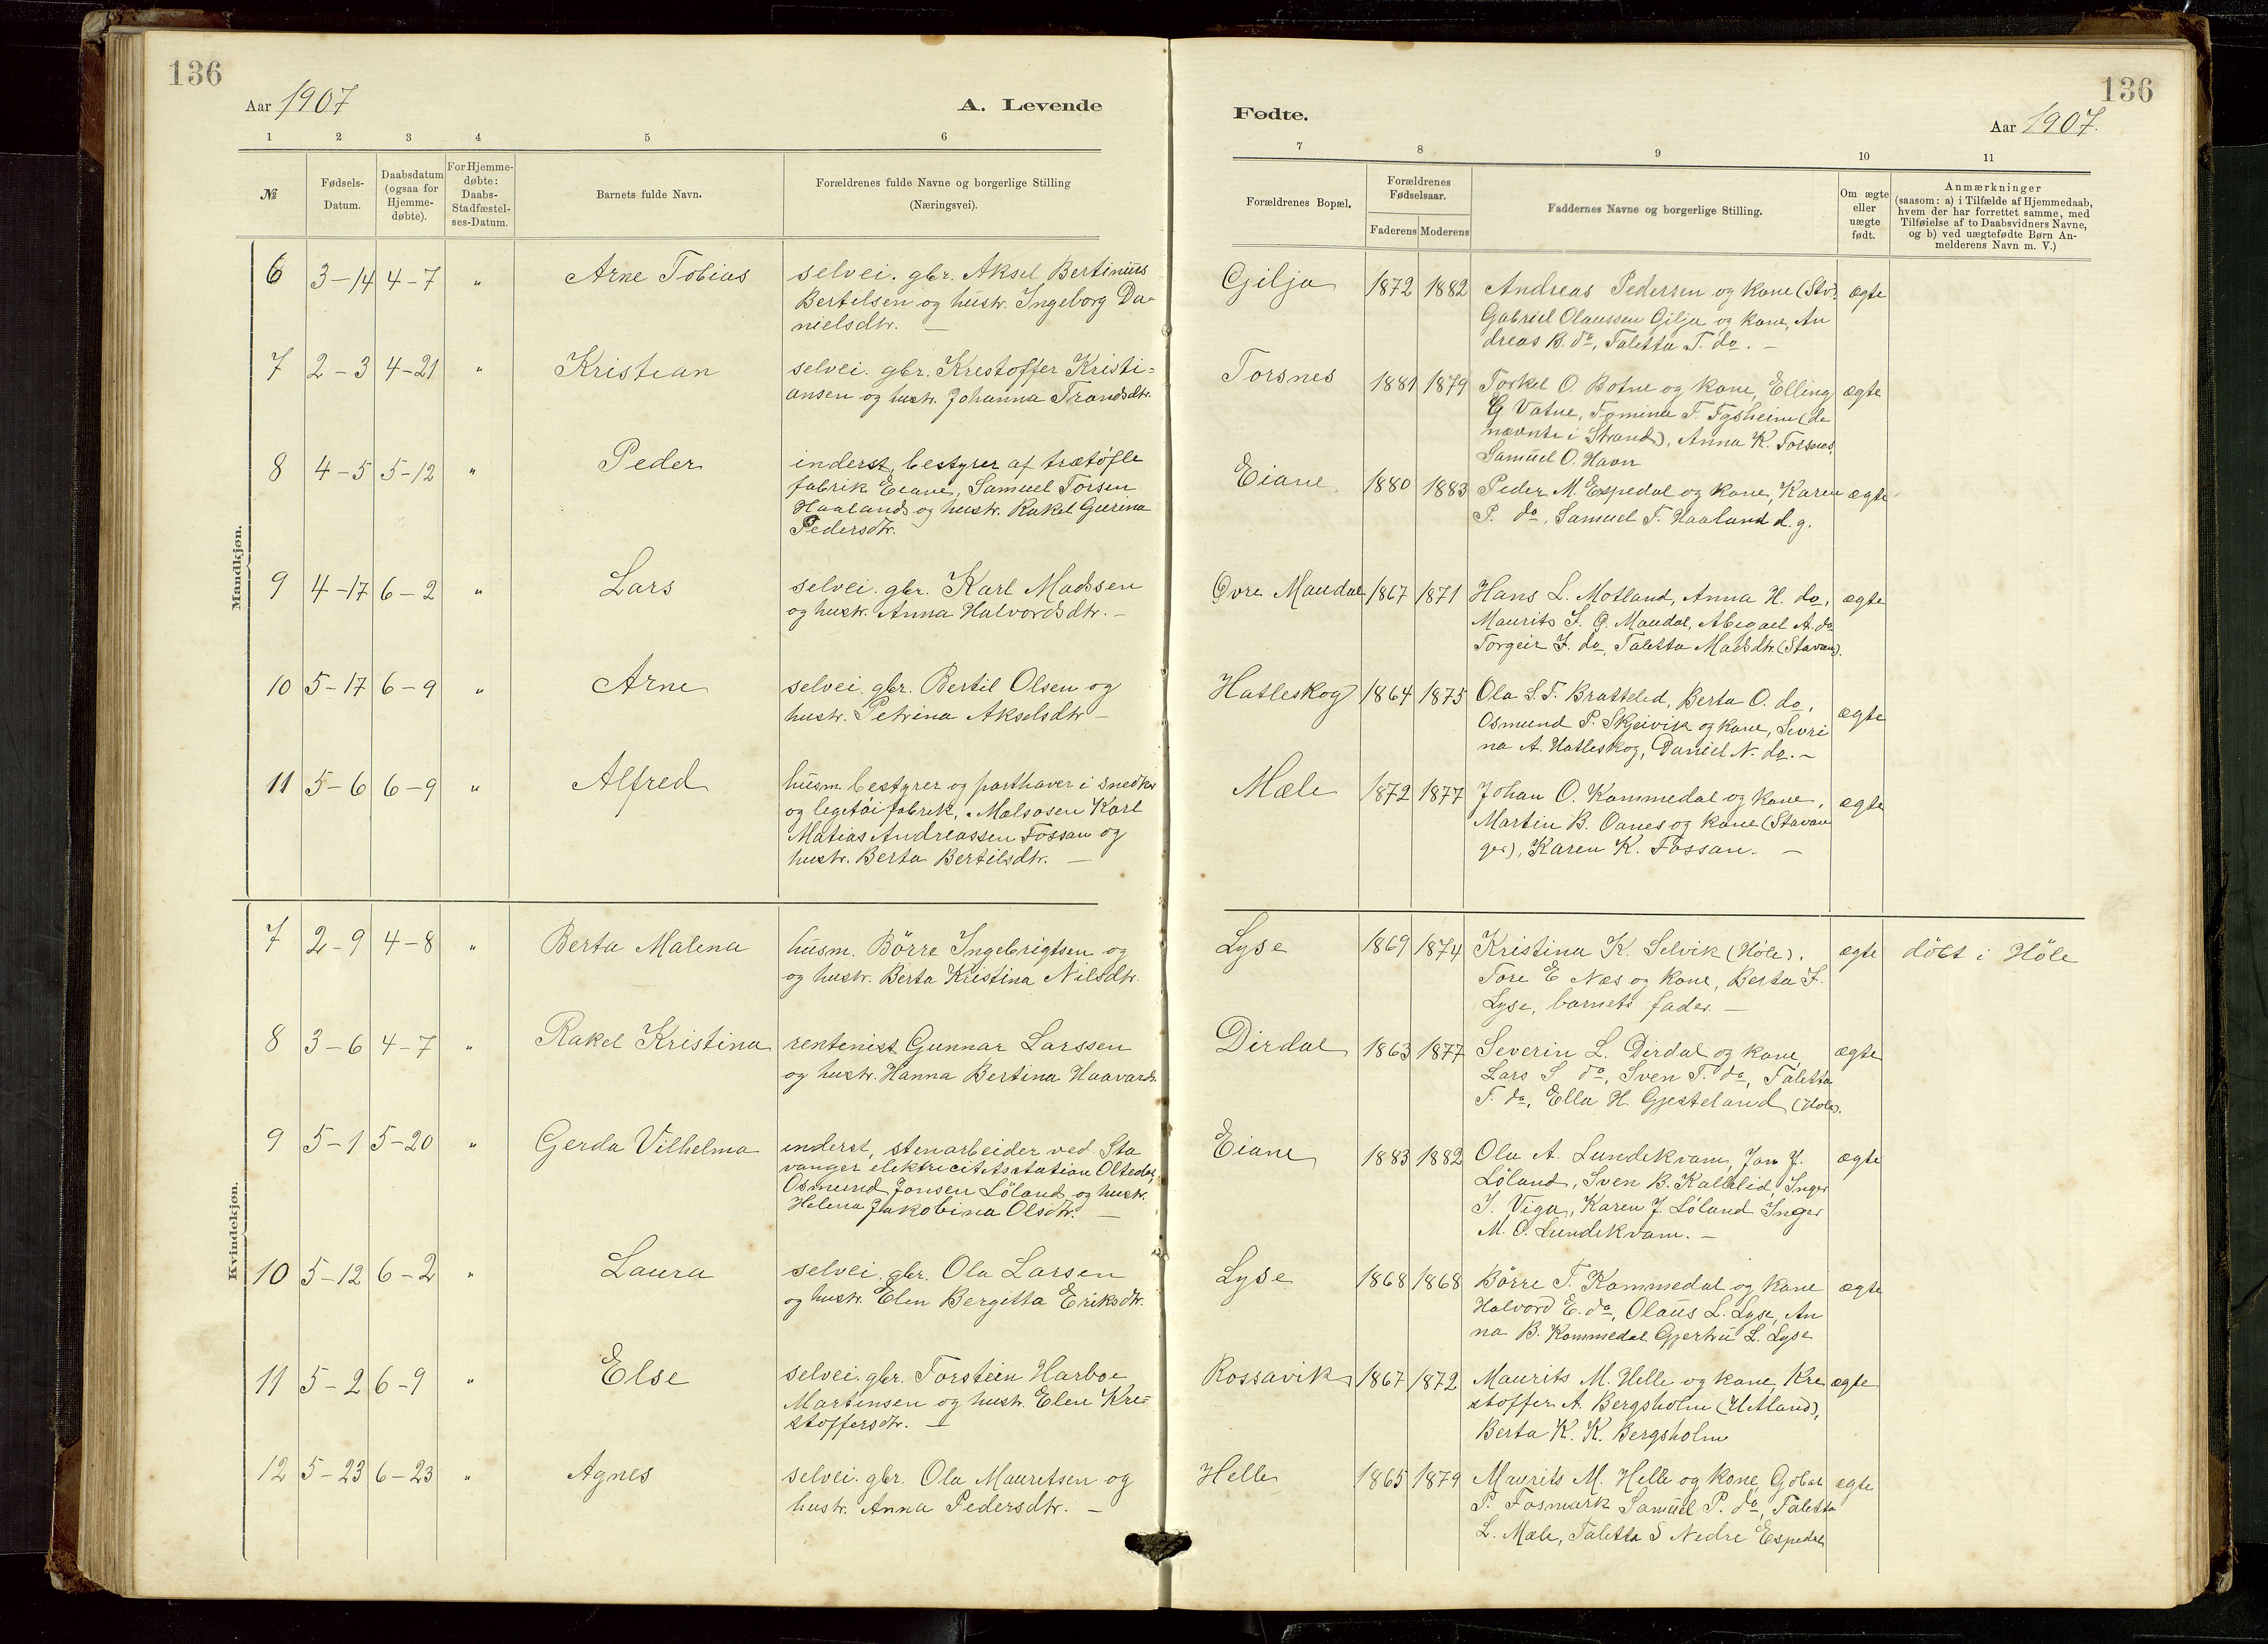 136
Aar 1907
A. Levende
1 2 3 4 5 6
№
Fødsels-
Datum.
Daabsdatum
(ogsaa for
Hjemme-
døbte).
For Hjemme-
døbte:
Daabs-
Stadfæstel-
ses-Datum.
Barnets fulde Navn.
Forældrenes fulde Navne og borgerlige Stilling
(Næringsvei).
Mandkjøn.
6 3-14 4-7 " Arne Tobias selvei. gbr. Aksel Bertinius
Bertelsen og hustr. Ingeborg Da-
nielsdtr. —
7 2-3 4-21 " Kristian selvei. gbr. Krestoffer Kristi-
ansen og hustr. Johanna Trondsdtr.
8 4-5 5-12 " Peder inderst, bestyrer af trætöfle
fabrik Eiane, Samuel Torsen
Haaland og hustr. Rakel Gurina
Pedersdtr.
9 4-17 6-2 " Lars selvei. gbr. Karl Madssen
og hustr. Anna Halvordsdtr. —
10 5-17 6-9 " Arne selvei. gbr. Bertil Olsen og
hustr. Petrina Akselsdtr —
11 5-6 6-9 " Alfred husm. bestyrer og parthaver i snedker
og legetöi fabrik, Mælsosen Karl
Matias Andreassen Fossan og
hustr. Berta Bertilsdtr. —
Kvindekjøn.
7 2-9 4-8 " Berta Malena husm. Börre Ingebrigtsen og
og hustr. Berta Kristina Nilsdtr.
8 3-6 4-7 " Rakel Kristina rentenist Gunnar Larssen
og hustr. Hanna Bertina Haavards.
9 5-1 5-20 " Gerda Vilhelma inderst, stenarbeider ved Sta
vanger elektricitetsstation Oltedal,
Osmund Jansen Löland og hustr.
Helena Jakobina Olsdtr. —
10 5-12 6-2 " Laura selvei. gbr. Ola Larsen
og hustr. Elen Bergitta Eriksdtr.
11 5-2 6-9 " Else selvei. gbr. Torstein Harboe
Martensen og hustr. Elen Kre-
stoffersdtr. —
12 5-23 6-23 " Agnes selvei. gbr. Ola Mauretsen og
hustr. Anna Pedersdtr. —
136
Fødte.
Aar 1907.
7 8 9 10 11
Forældrenes Bopæl.
Forældrenes
Fødselsaar.
Faderens Moderens
Faddernes Navne og borgerlige Stilling.
Om ægte
eller
uægte
født.
Anmærkninger
(saasom: a) i Tilfælde af Hjemmedaab,
hvem der har forrettet samme, med
Tilføielse af to Daabsvidners Navne,
og b) ved uægtefødte Børn An-
melderens Navn m. V.)
Gilja 1872 1882 Andreas Pedersen og kone (Stv). ægte
Gabriel Olaussen Gilja og kone, An
dreas B. do, Taletta T. do. —
Torsnes 1881 1879 Torkel O. Botne og kone, Elling ægte
G Vatne, Tomina T. Tysheim (de
nævnte i Strand), Anna K. Torsnes.
Samuel O. Havn
Eiane 1880 1883 Peder M. Espedal og kone, Karen ægte
P. do, Samuel T. Haaland d. g.
Øvre Maudal 1867 1871 Hans L. Motland, Anna H. do, ægte
Maurits I. Ø. Maudal, Abigael A. do
Torgeir I. do, Taletta Madsdtr. (Stavan).
Hatleskog 1864 1875 Ola S. T. Brattelid, Berta O. do, ægte
Osmund P. Skjeivik og kone, Sevri
na A. Hatleskog, Daniel N. do. —
Mæle 1872 1877 Johan O. Kommedal og kone, ægte
Martin B. Oanes og kone (Stavan
ger), Karen K. Fossan. —
Lyse 1869 1874 Kristina K. Selvik (Höle). ægte döbt i Höle
Tore E Næs og kone, Berta I.
Lyse, barnets fader. —
Dirdal 1863 1877 Severin L. Dirdal og kone, ægte
Lars S do, Sven T. do, Taletta
T. do, Ella H. Gjesteland (Höle).
Eiane 1883 1882 Ola A. Lundekvam, Jan J. ægte
Löland, Sven B. Kallelid, Inger
I. Viga, Karen J. Löland Inger
M. O. Lundekvam. —
Lyse 1868 1868 Börre T. Kommedal og kone ægte
Halvord E. do, Olaus L. Lyse, An
na B. Kommedal Gjertru L. Lyse
Rossavik 1867 1872 Maurits M. Helle og kone, Kre ægte
stoffer A. Bergsholm (Hetland),
Berta K. K. Bergsholm
Helle 1865 1879 Maurits M. Helle og kone, Göbal ægte
P. Fosmark Samuel P. do, Taletta
L. Mæle, Taletta S Nedre Espedal